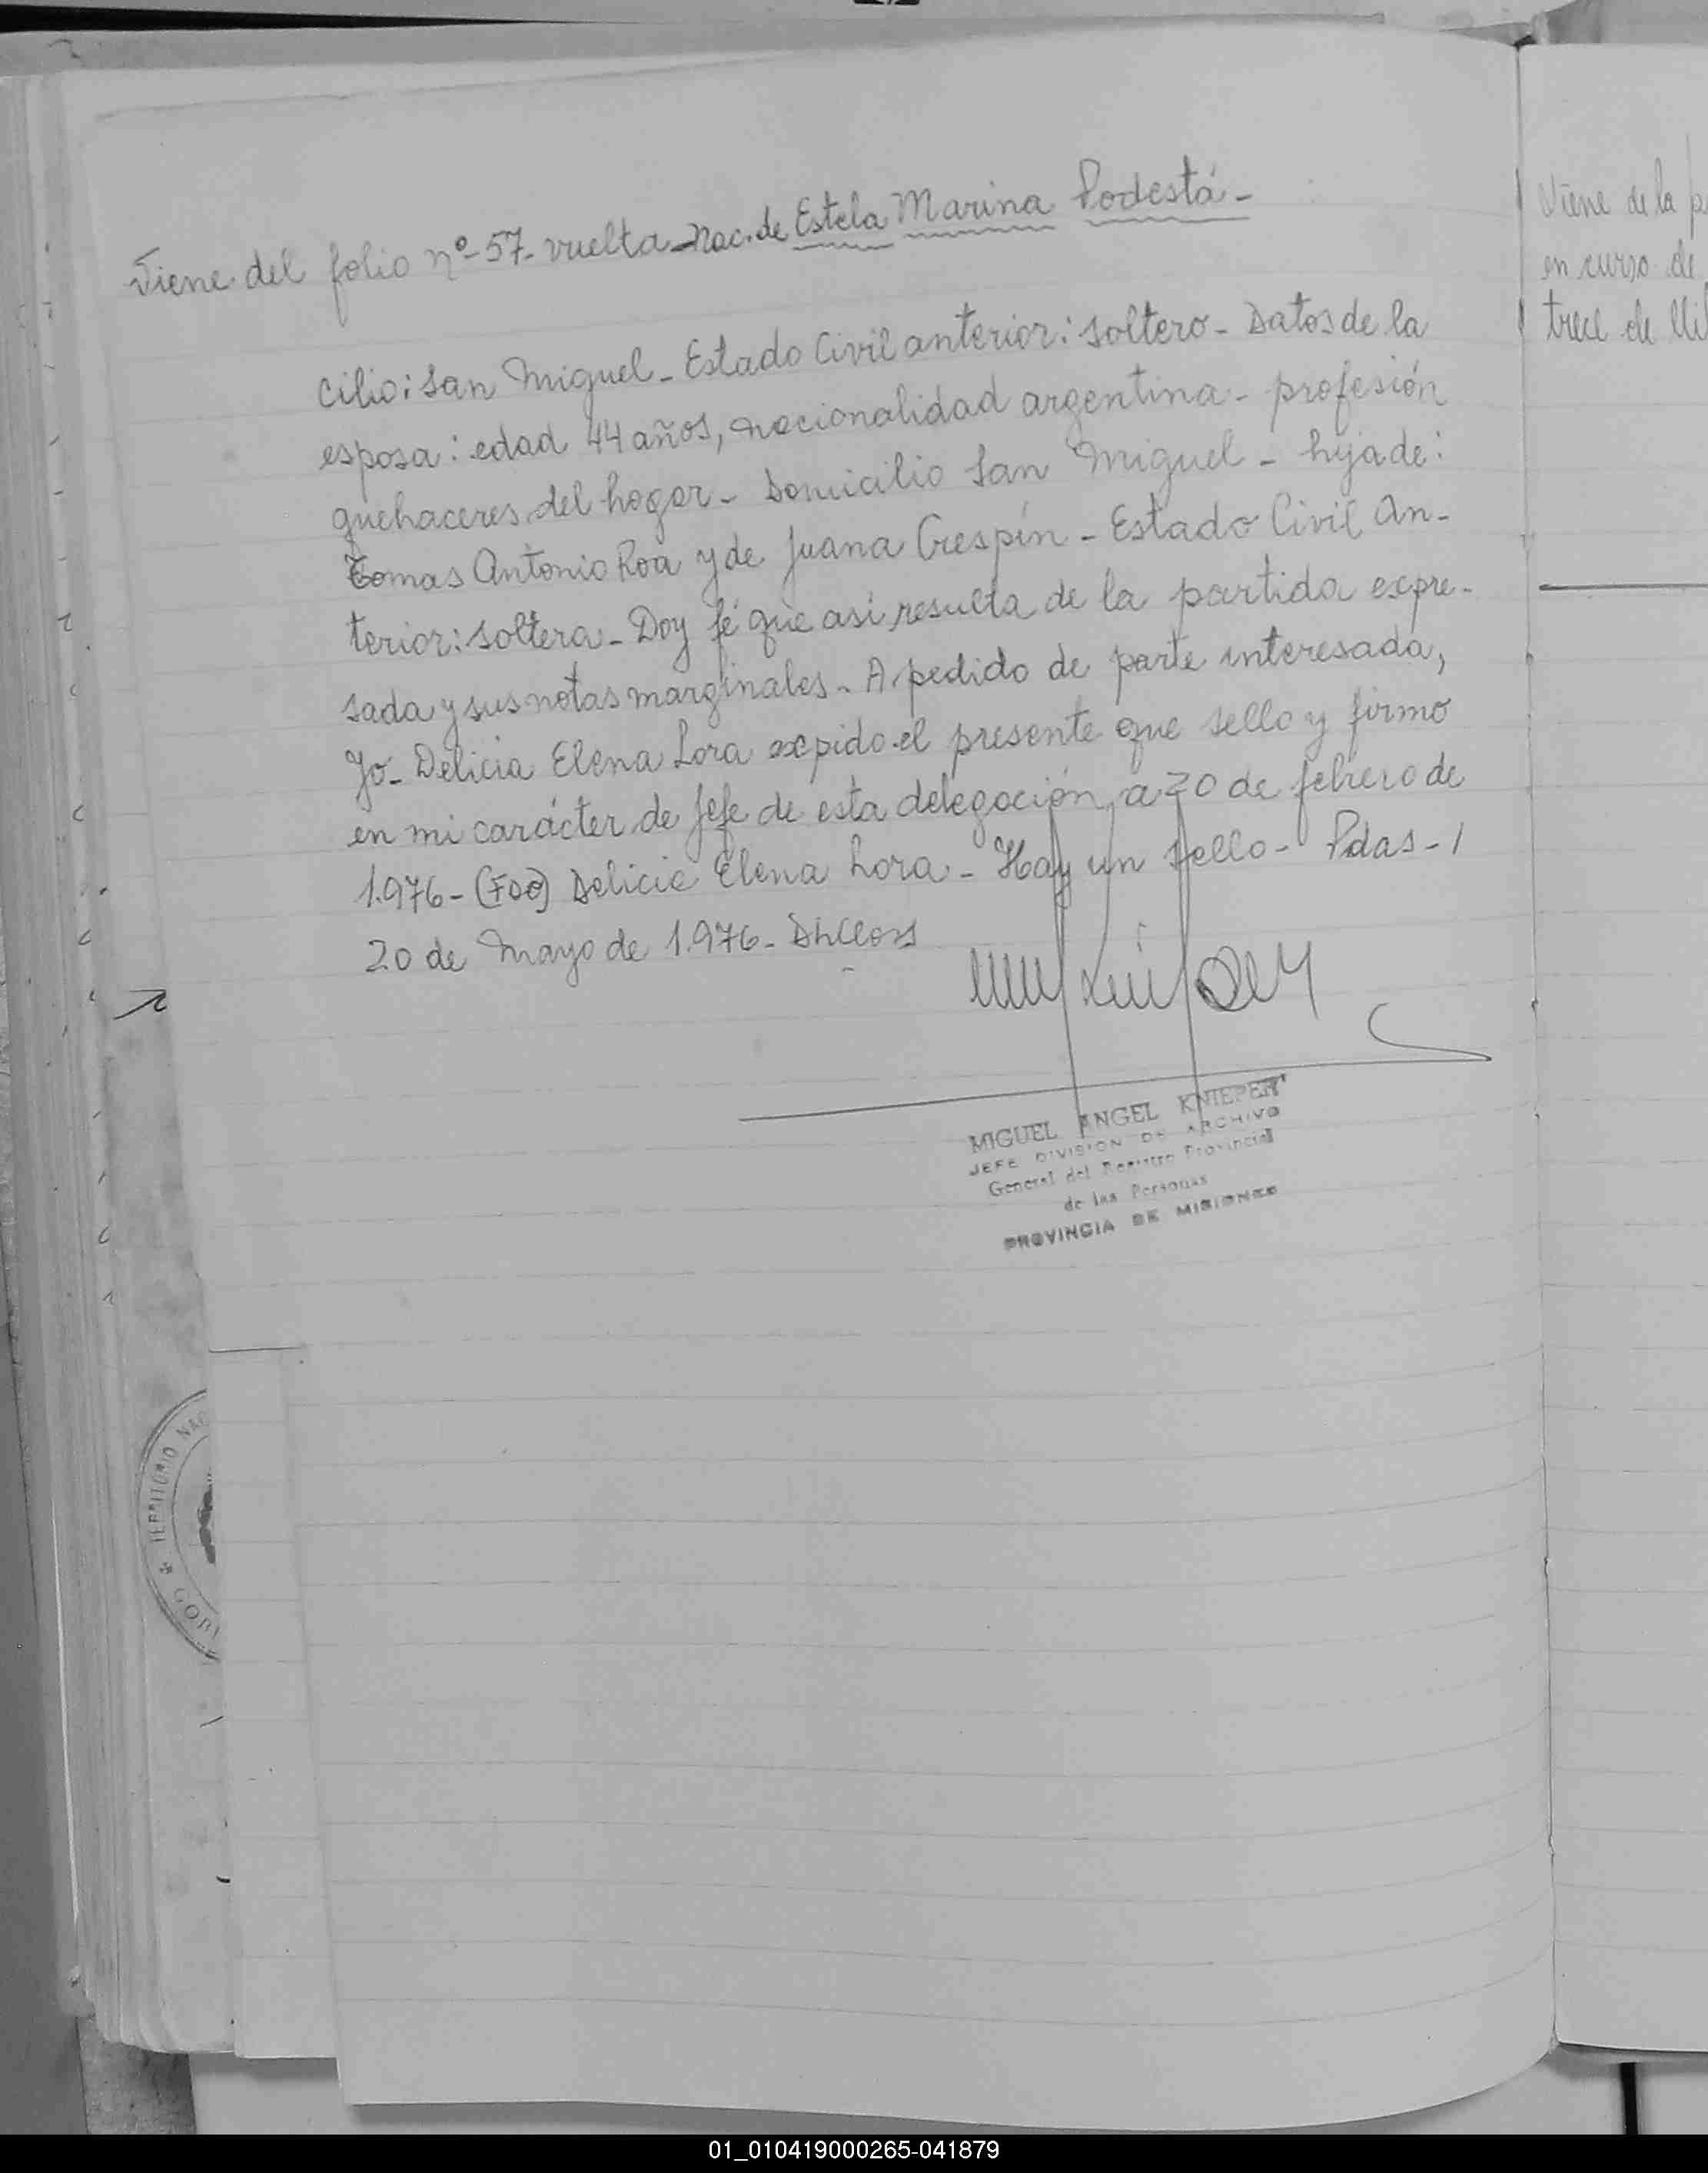 Viene del folio nº-57-vuelta-Nac. de Estela Marina Podestá-
cilio: San Miguel- Estado Civil anterior: soltero- Datos de la
esposa: edad 44 años, nacionalidad argentina- profesión
quehaceres del hogar- Domicilio San Miguel- hija de:
Tomas Antonio Roa y de Juana Crespín- Estado Civil An-
terior: soltera- Doy fé que asi resulta de la partida expre-
sada y sus notas marginales- A pedido de parte interesada,
Yo- Delicia Elena Lora expido el presente que sello y firmo
en mi carácter de Jefe de esta delegación, a 20 de febrero de
1.976- (Fdo) Delicia Elena Lora- Hay un sello- Pdas-/
20 de Mayo de 1.976-
MIGUEL ANGEL KNIEPERT
JEFE DIVISION DE ARCHIVO
General del Registro Provincial
de las Personas
PROVINCIA DE MISIONES
TERRITORIO NAC
GOB
Viene de la
en curso de
trece de
01_010419000265-041879